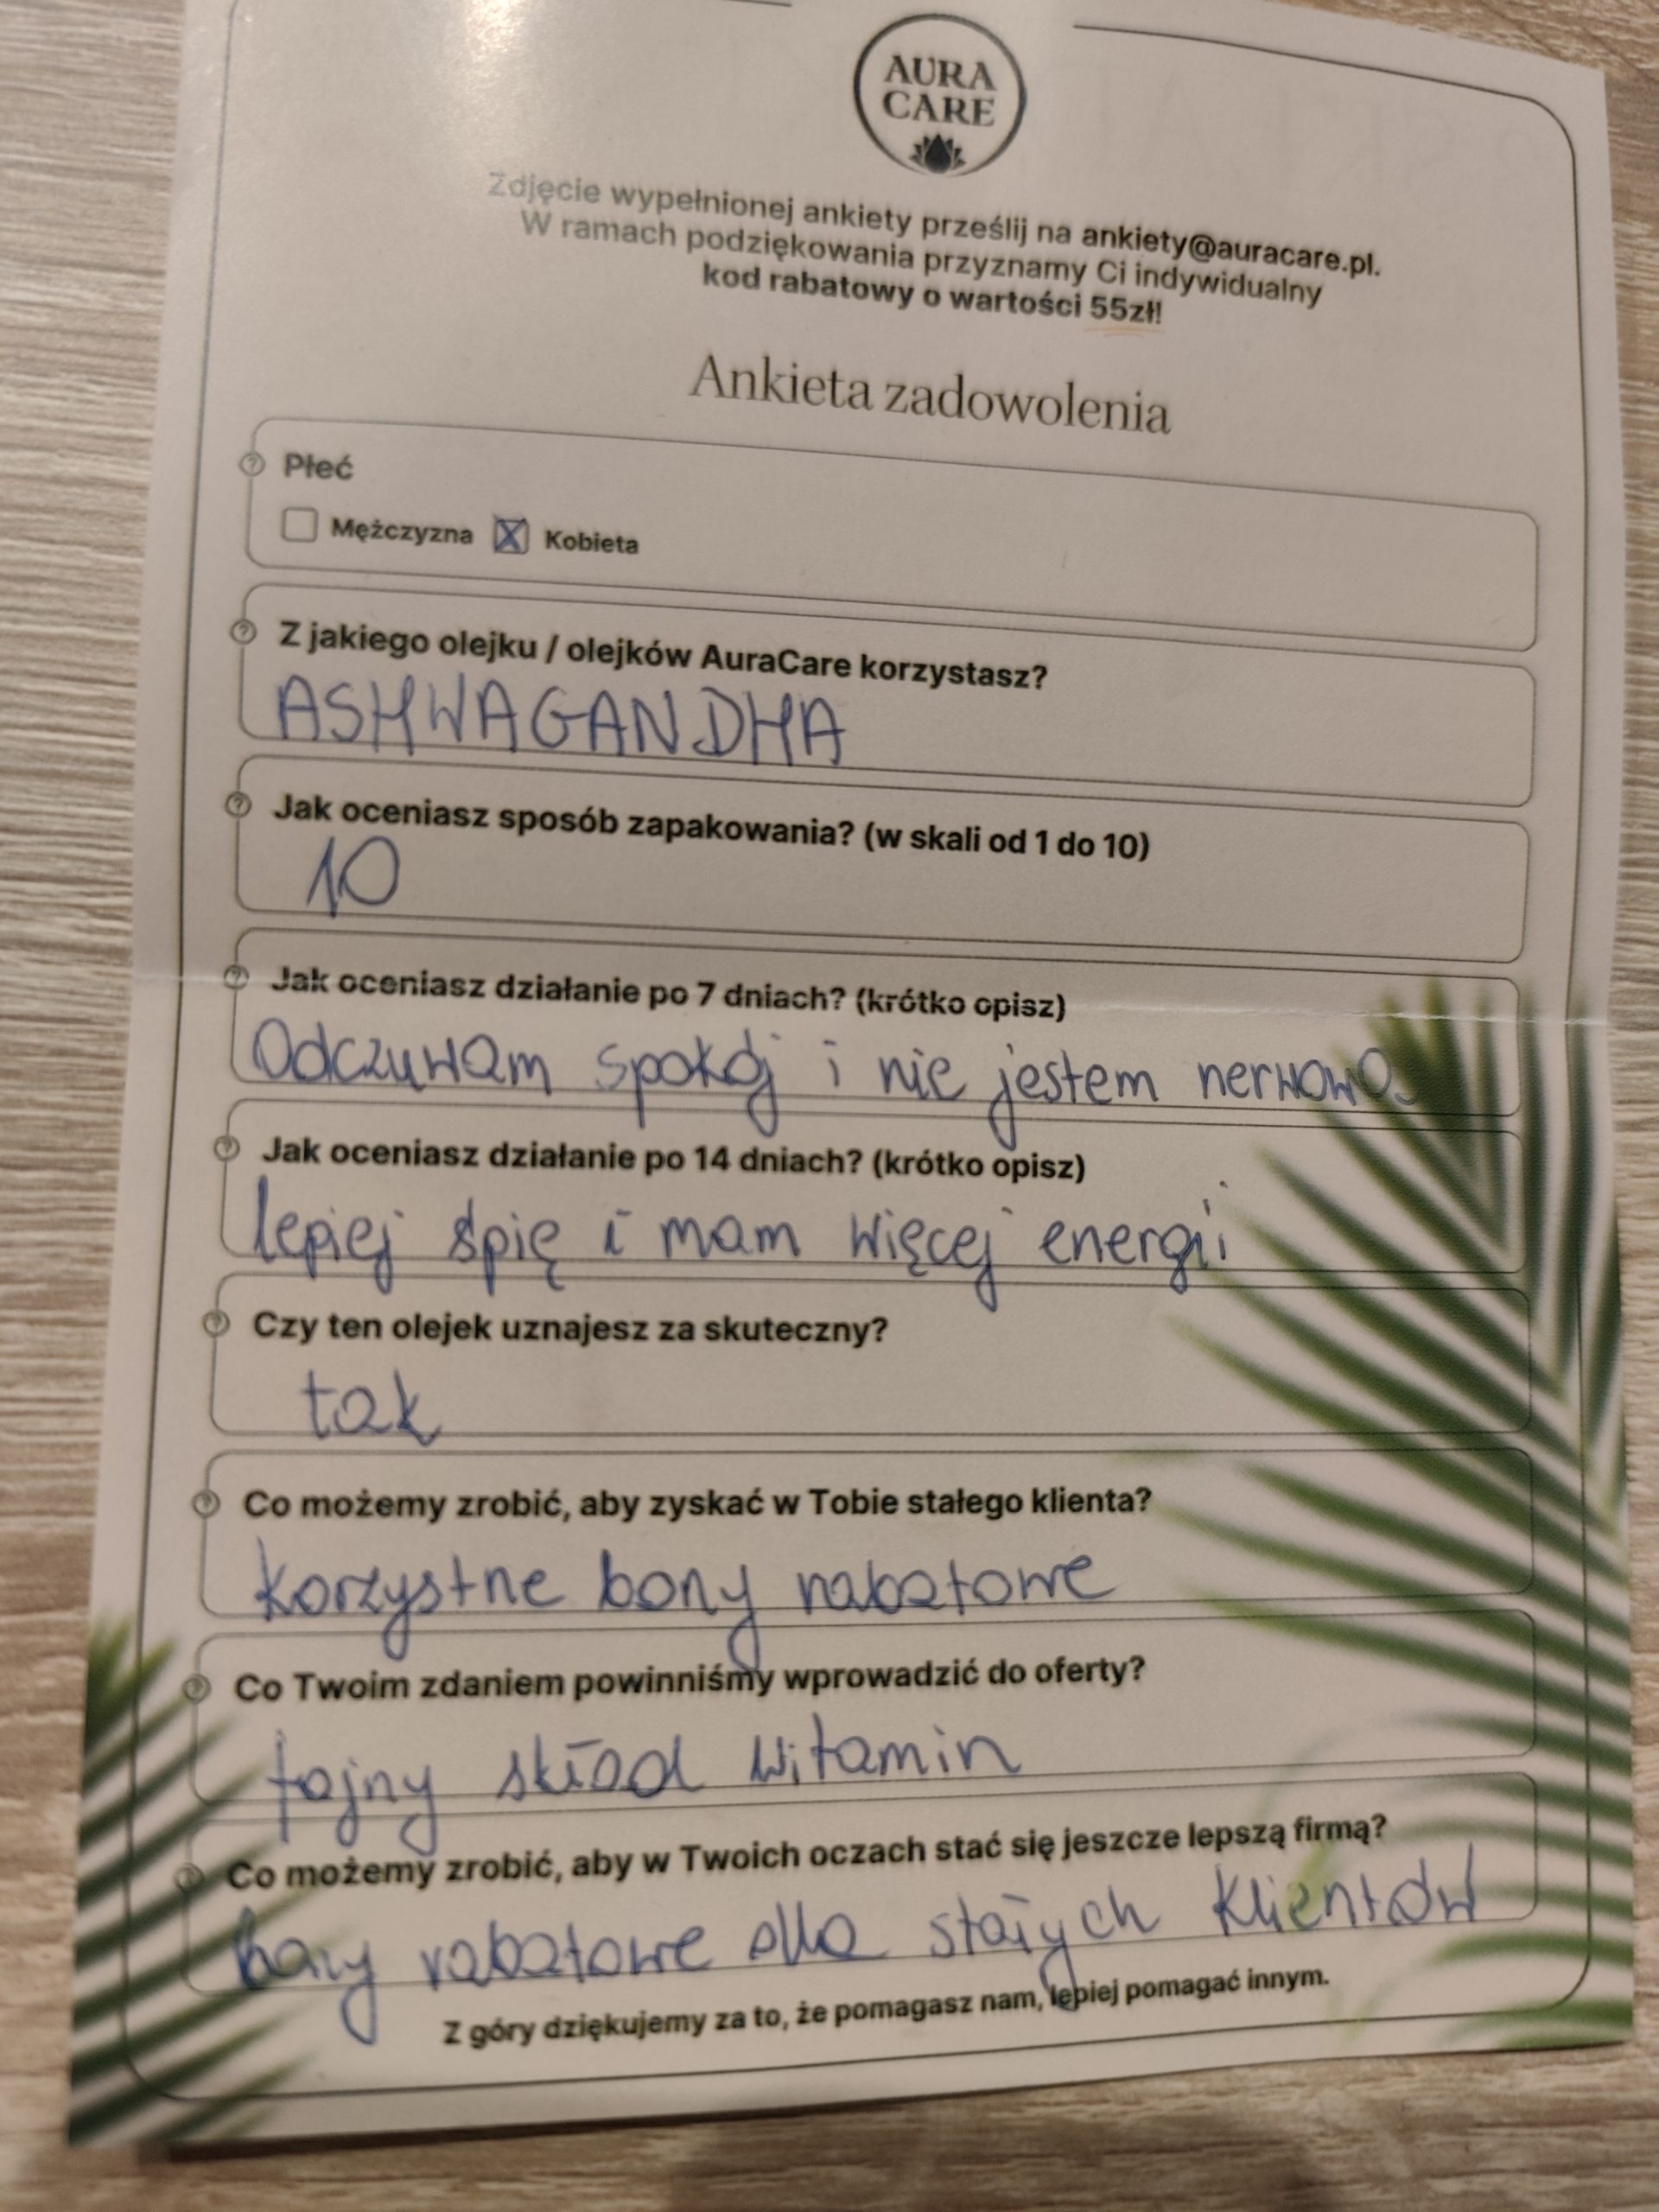 AURA
CARE
Zdjęcie wypełnionej ankiety prześlij na ankiety@auracare.pl.
W ramach podziękowania przyznamy Ci indywidualny
kod rabatowy o wartości 55zł!
Ankieta zadowolenia
Płeć
Mężczyzna Kobieta
Z jakiego olejku / olejków AuraCare korzystasz?
ASHWAGANDHA
Jak oceniasz sposób zapakowania? (w skali od 1 do 10)
10
Jak oceniasz działanie po 7 dniach? (krótko opisz)
Odczuwam spokój i nie jestem nerwowa
Jak oceniasz działanie po 14 dniach? (krótko opisz)
lepiej śpię i mam więcej energii
Czy ten olejek uznajesz za skuteczny?
tak
Co możemy zrobić, aby zyskać w Tobie stałego klienta?
korzystne bony rabatowe
Co Twoim zdaniem powinniśmy wprowadzić do oferty?
fajny skład witamin
Co możemy zrobić, aby w Twoich oczach stać się jeszcze lepszą firmą?
bony rabatowe dla stałych klientów
Z góry dziękujemy za to, że pomagasz nam, lepiej pomagać innym.